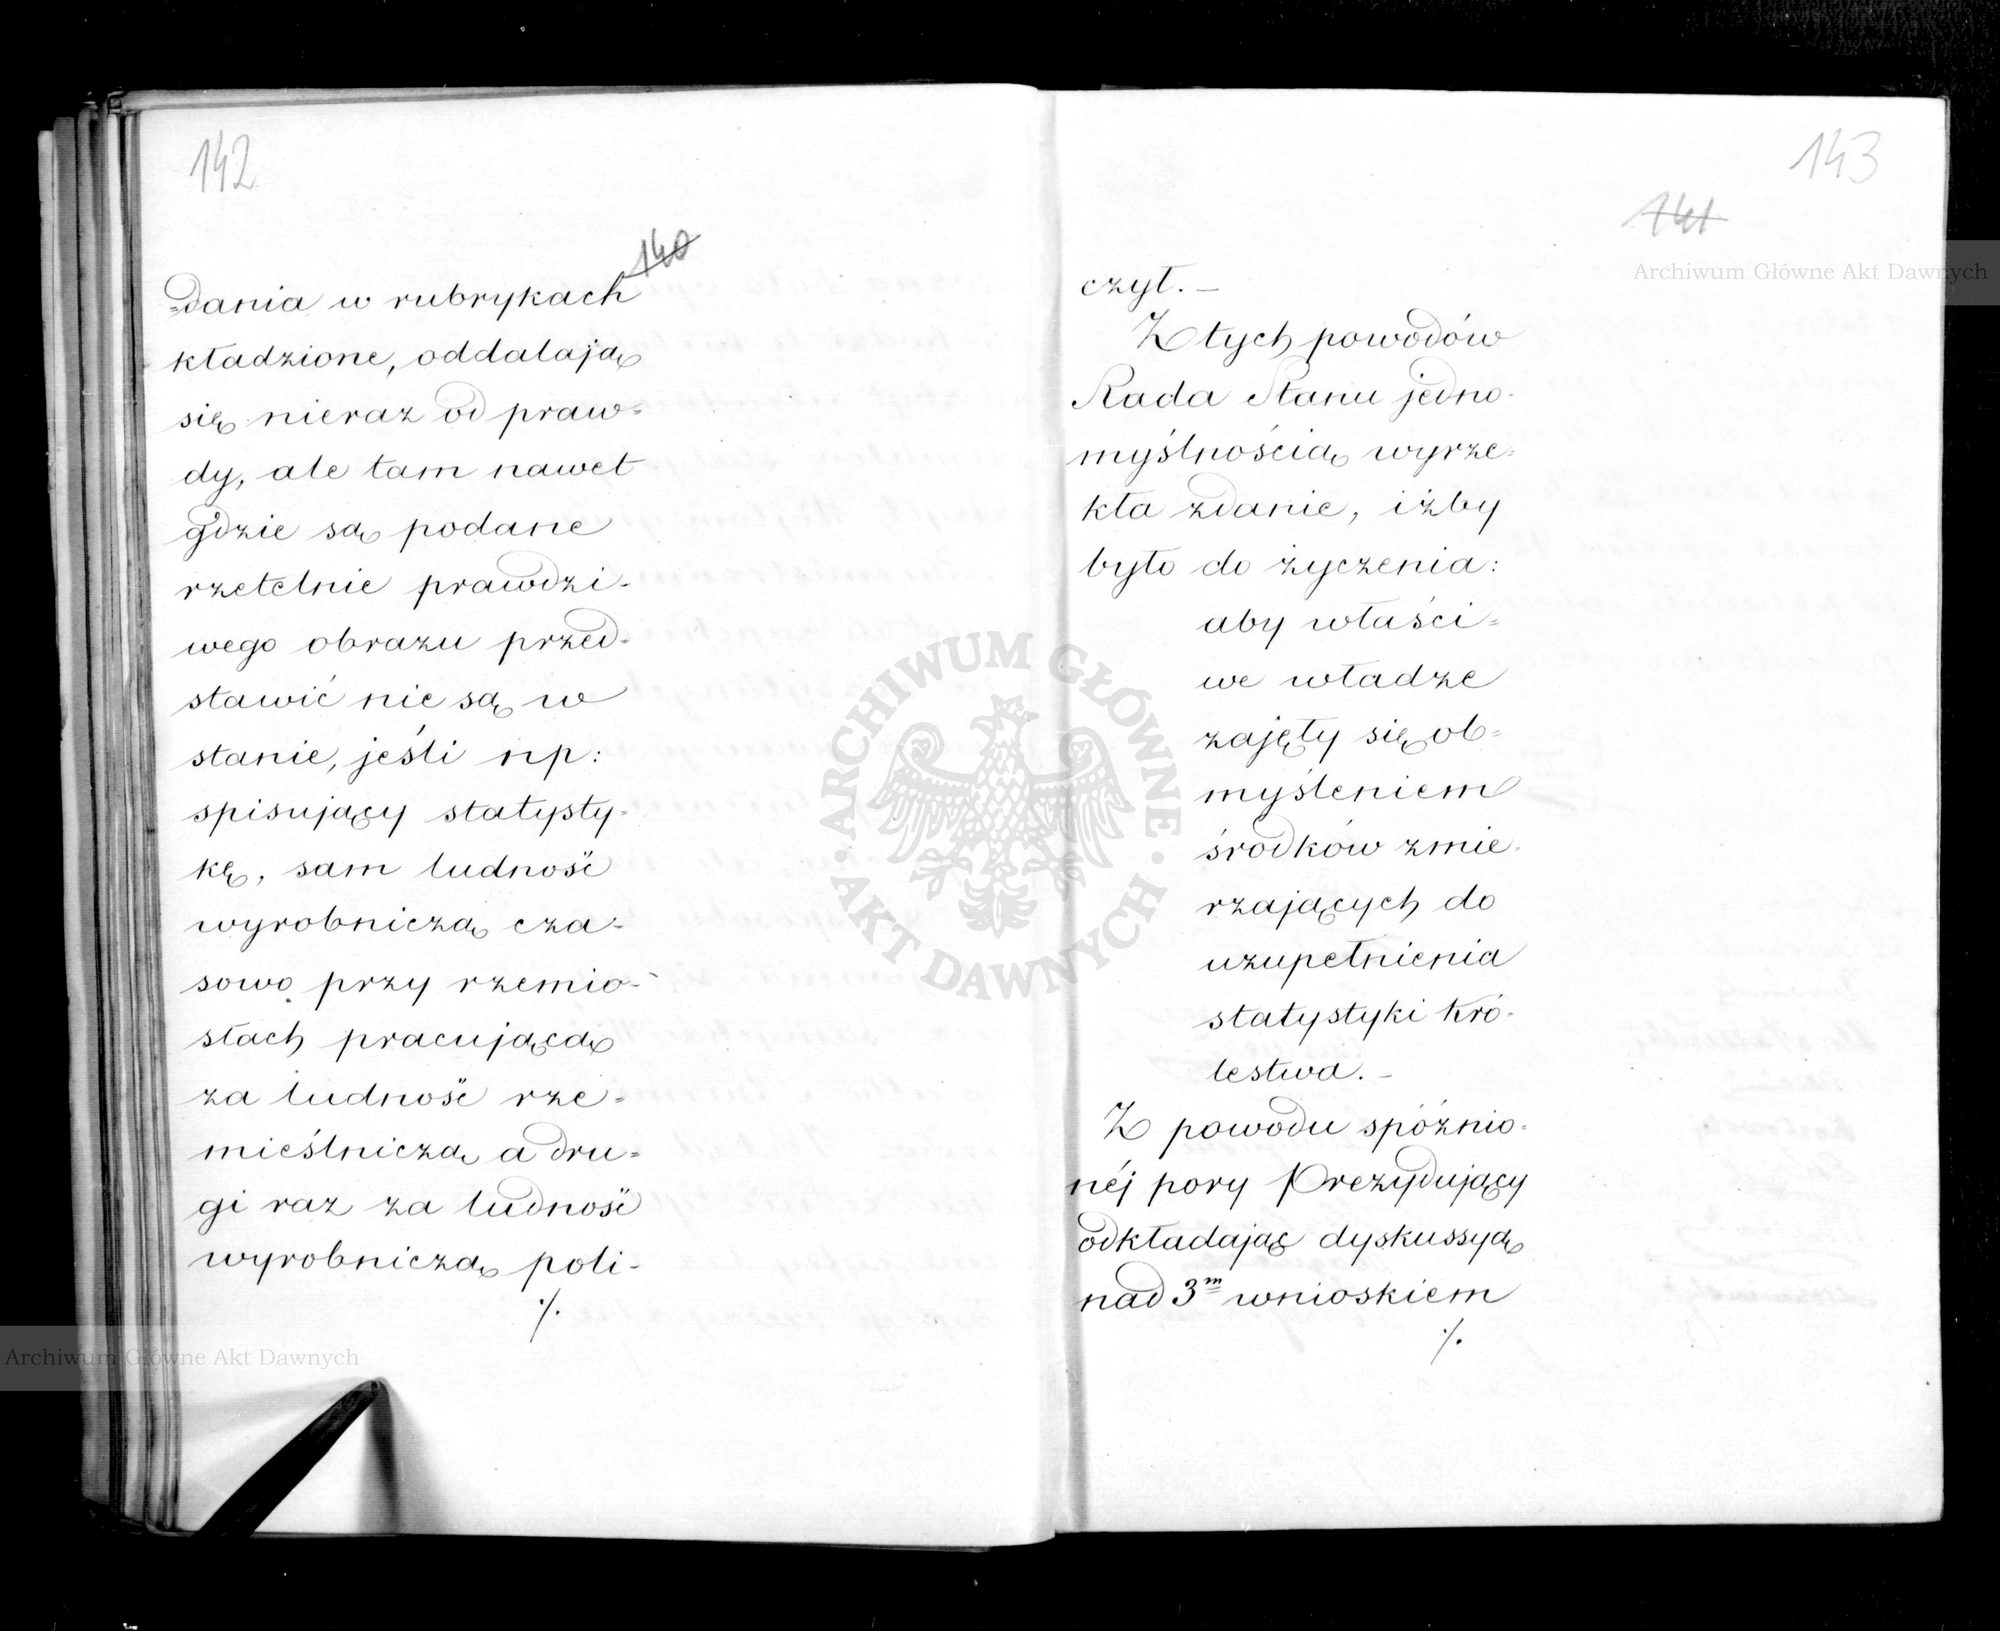 142
140
=dania w rubrykach
kładzione, oddalają
się nieraz od praw=
dy, ale tam nawet
gdzie są podane
rzetelnie prawdzi-
wego obrazu przed-
stawić nie są w
stanie, jeśli np:
spisujący statysty-
kę, sam ludność
wyrobniczą cza-
sowo przy rzemio-
słach pracującą
za ludność rze-
mieślniczą a dru=
gi raz za ludność
wyrobniczą poli-
./.
143
141
czył. –
Z tych powodów
Rada Stanu jedno-
myślnością wyrze-
kła zdanie, iżby
było do życzenia:
aby właści=
we władze
zajęły się ob=
myśleniem
środków zmie-
rzających do
uzupełnienia
statystyki Kró-
lestwa. –
Z powodu spóźnio-
néj pory Prezydujący
odkładając dyskussyą
nad 3m wnioskiem
./.
Archiwum Główne Akt Dawnych
ARCHIWUM GŁÓWNE
AKT DAWNYCH
Archiwum Główne Akt Dawnych